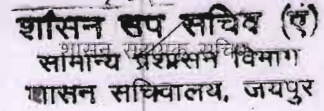 शासन उप सचिव (ए)
शासन सहायक सचिव
सामान्य प्रशासन विभाग
शासन सचिवालय, जयपुर